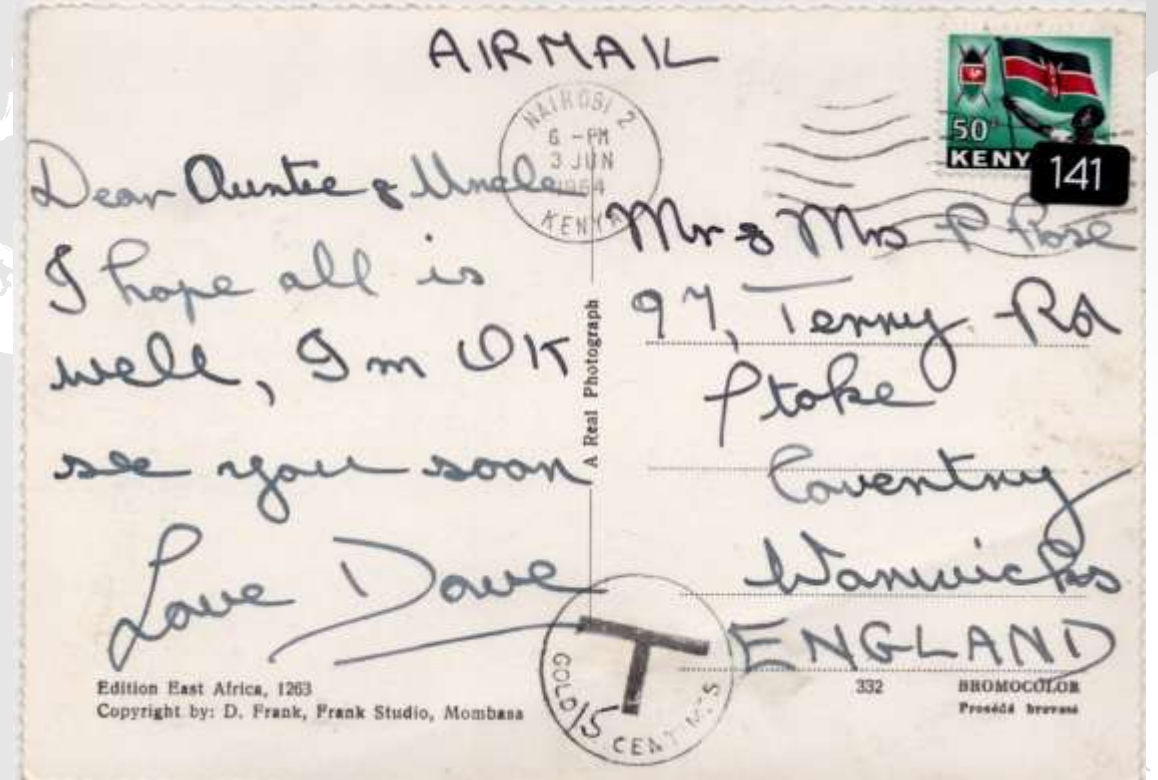 AIRMAIL
NAIROBI 2
6 - PM
3 JUN
1964
KENYA
50
KENY
141
Dear Auntie & Uncle
I hope all is
well, I m OK
see you soon
Love Dave
Mr & Mrs P Rose
97, Terry Rd
Stoke
Coventry
Warwicks
ENGLAND
A Real Photograph
T
GOLD 15 CENTIMES
Edition East Africa, 1263
Copyright by: D. Frank, Frank Studio, Mombasa
332
BROMOCOLOR